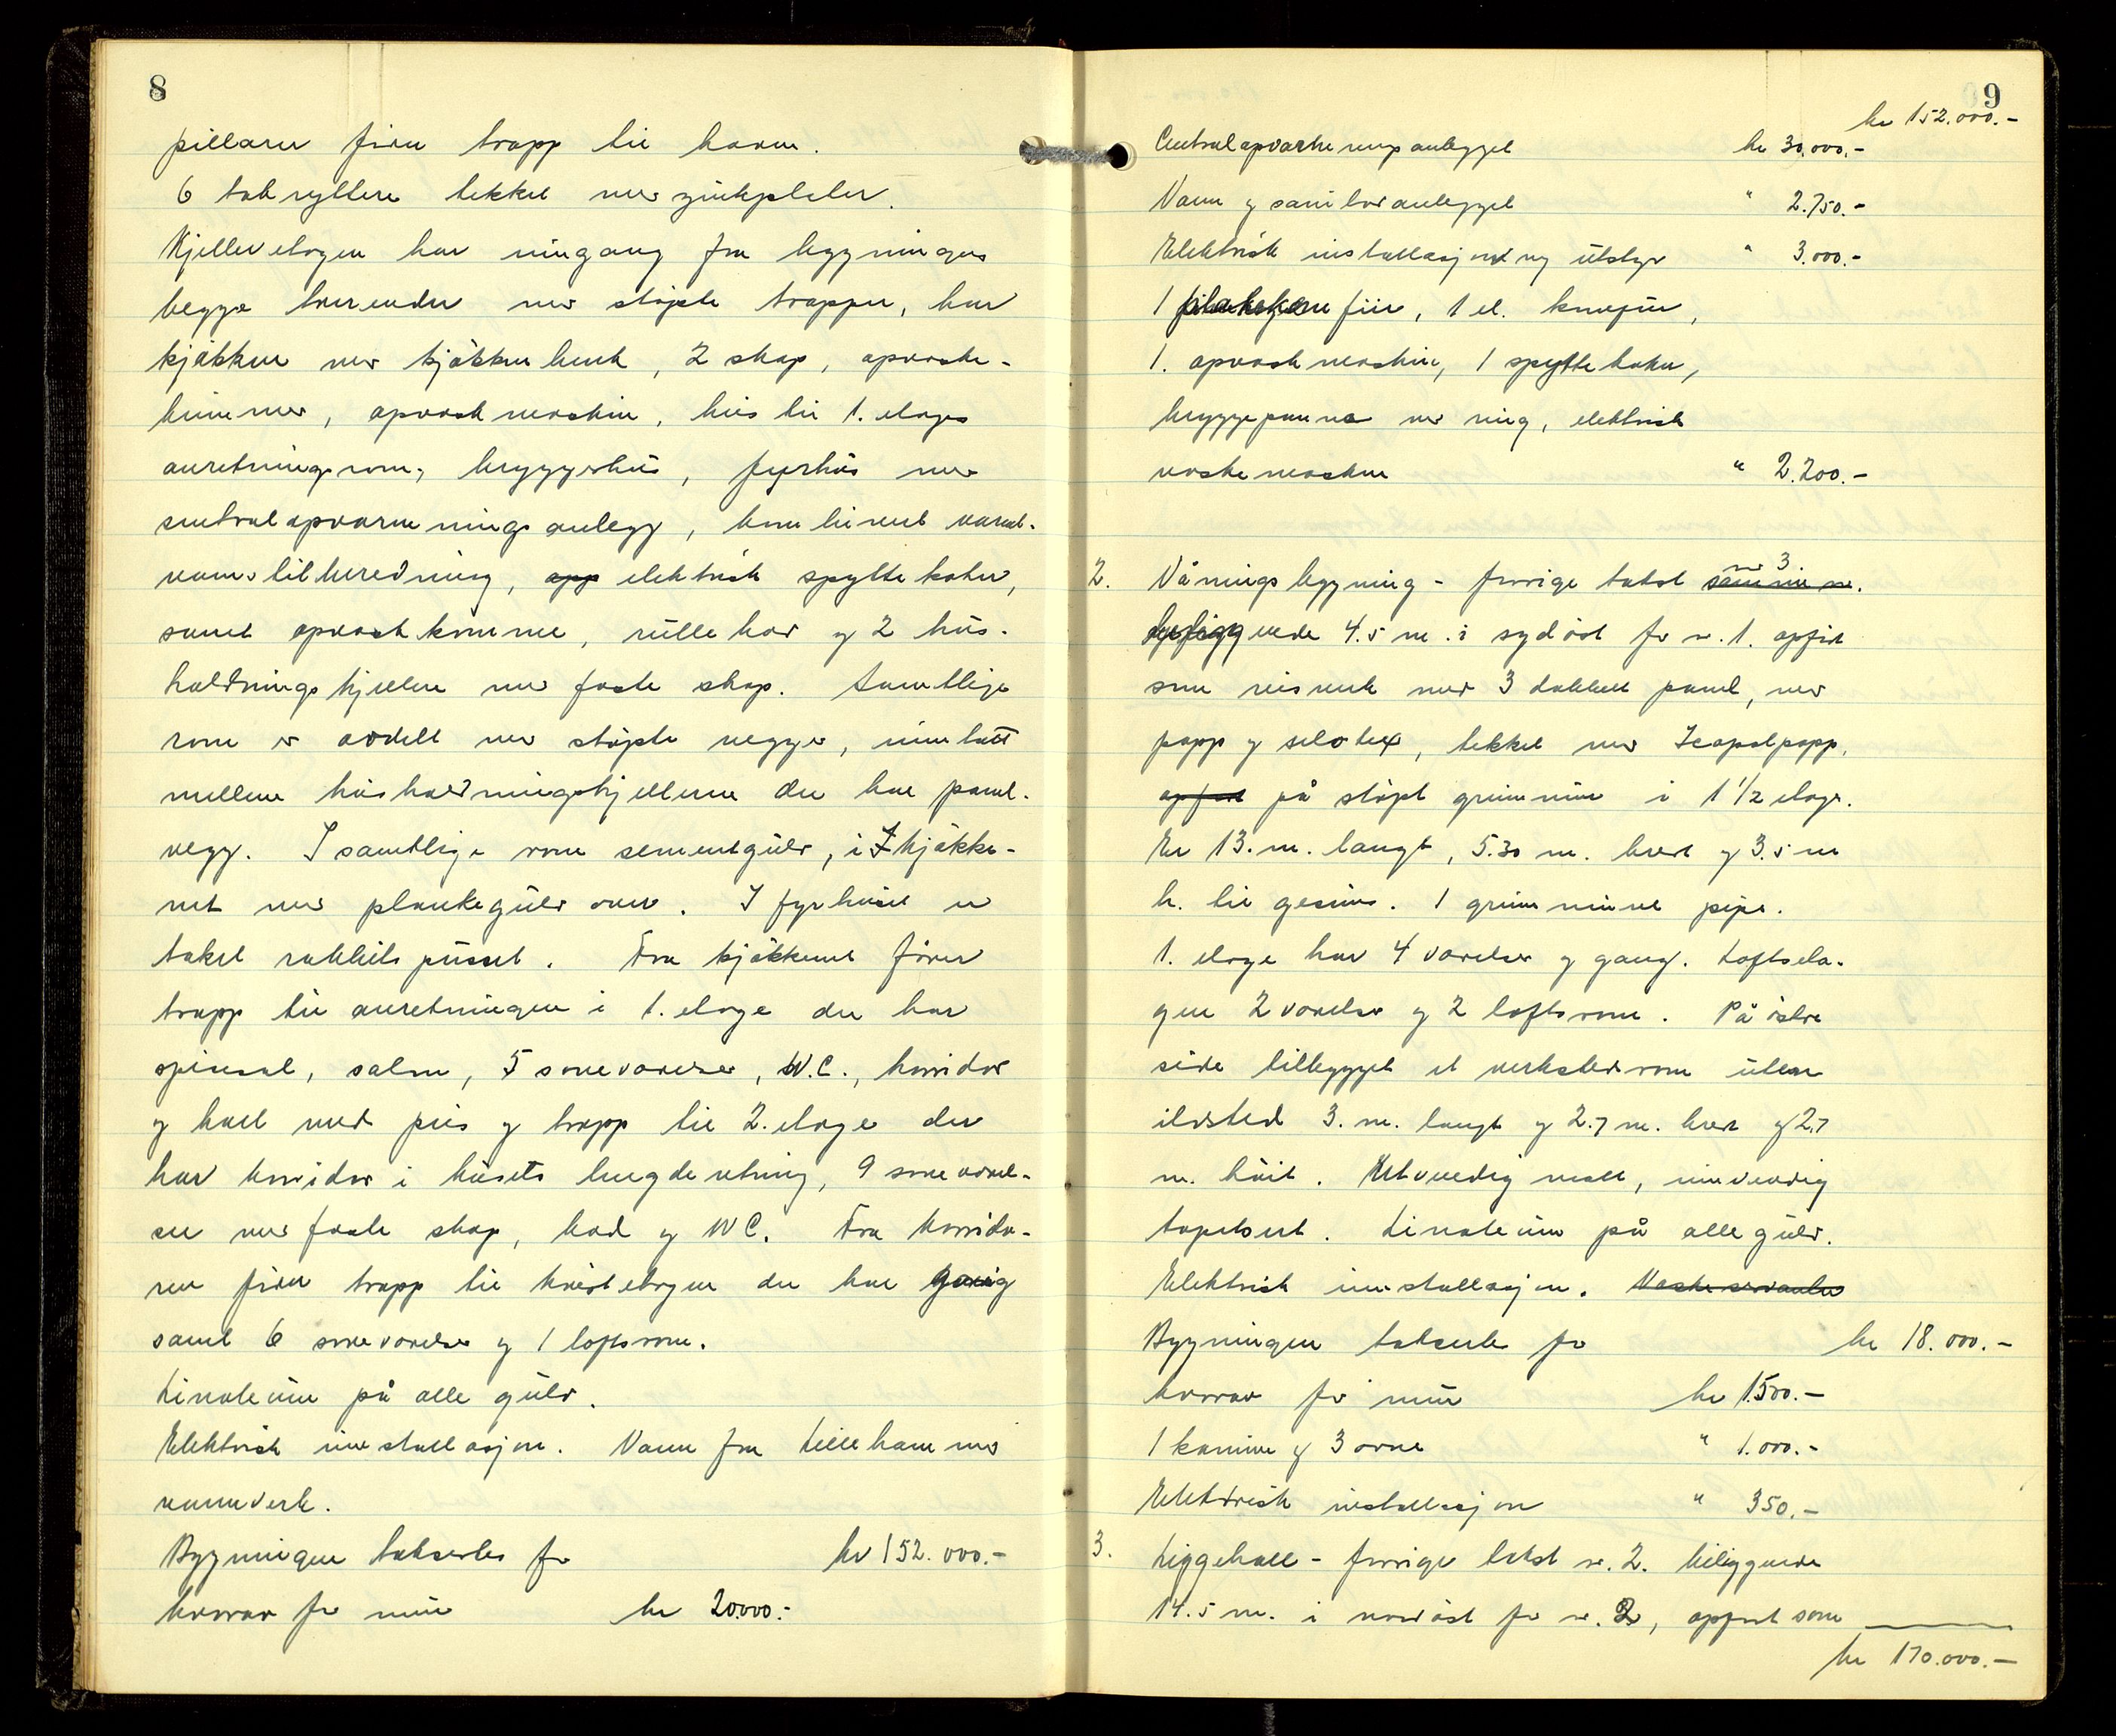 8
pillarer fører trapp til haven.
6 takryttere tekket med zinkplater.
Kjelleretagen har inngang fra bygningens
begge tverender med støpte trapper, har
kjøkken med kjøkkenbenk, 2 skap, opvaske-
kummer, opvaskmaskin, heis til 1. etages
anretningsrom, bryggerhus, fyrhus med
sentralopvarmningsanlegg, kombinert varmt-
vannstilberedning, elektrisk spyttekoker,
samt opvaskkumme, rullebod og 2 hus-
holdningskjellere med faste skap. Samtlige
rom er avdelt med støpte vegger, unntatt
mellem husholdningskjellerne der har panel-
vegg. I samtlige rom sementgulv, i kjøkke-
net med plankegulv over. I fyrhuset er
taket rabbitspusset. Fra kjøkkenet fører
trapp til anretningen i 1. etage der har
spisesal, salon, 5 soveværelser, W.C., korridor
og hall med peis og trapp til 2. etage der
har korridor i husets lengderetning, 9 soveværel-
ser med faste skap, bad og WC. Fra korrido-
ren fører trapp til kvistetagen der har gang
samt 6 soveværelser og 1 loftsrom.
Linoleum på alle gulv.
Elektrisk installasjon. Vann fra Lillehammer
vannverk.
Bygningen takseres for kr 152.000.-
hvorav for mur kr 20.000.-
9
kr 152.000.-
Centralopvarmningsanlegget kr 30.000.-
Vann og sanitæranlegget " 2.750.-
Elektrisk installasjon og utstyr " 3.000.-
1 komfur, 1 el. komfur,
1. opvaskmaskin, 1 spyttekoker,
bryggepanne med ring, elektrisk
vaskemaskin " 2.200.-
2. Våningsbygning - forrige takst nr 3.
beliggende 4.5 m. i sydöst for nr. 1. opført
som reisverk med 3 dobbelt panel, med
papp og selotex, tekket med Icopalpapp,
på støpt grunnmur i 1 1/2 etage.
Er 13. m. langt, 5.30 m. bredt og 3.5 m
h. til gesims. 1 grunnmuret pipe.
1. etage har 4 værelser og gang. Loftseta-
gen 2 værelser og 2 loftsrom. På östre
side tilbygget et verkstedrom uten
ildsted 3. m. langt og 2.7 m. bredt og 2.7
m. höit. Utvendig malt, innvendig
tapetsert. Linoleum på alle gulv.
Elektrisk installasjon. Vaskeservanter
Bygningen takseres for kr 18.000.-
hvorav for mur kr 1.500.-
1 kamin og 3 ovner " 1.000.-
Elektrisk installasjon " 350.-
3. Liggehall - forrige takst nr. 2. beliggende
14.5 m. i nordöst for nr. 2, oppført som
kr 170.000.-